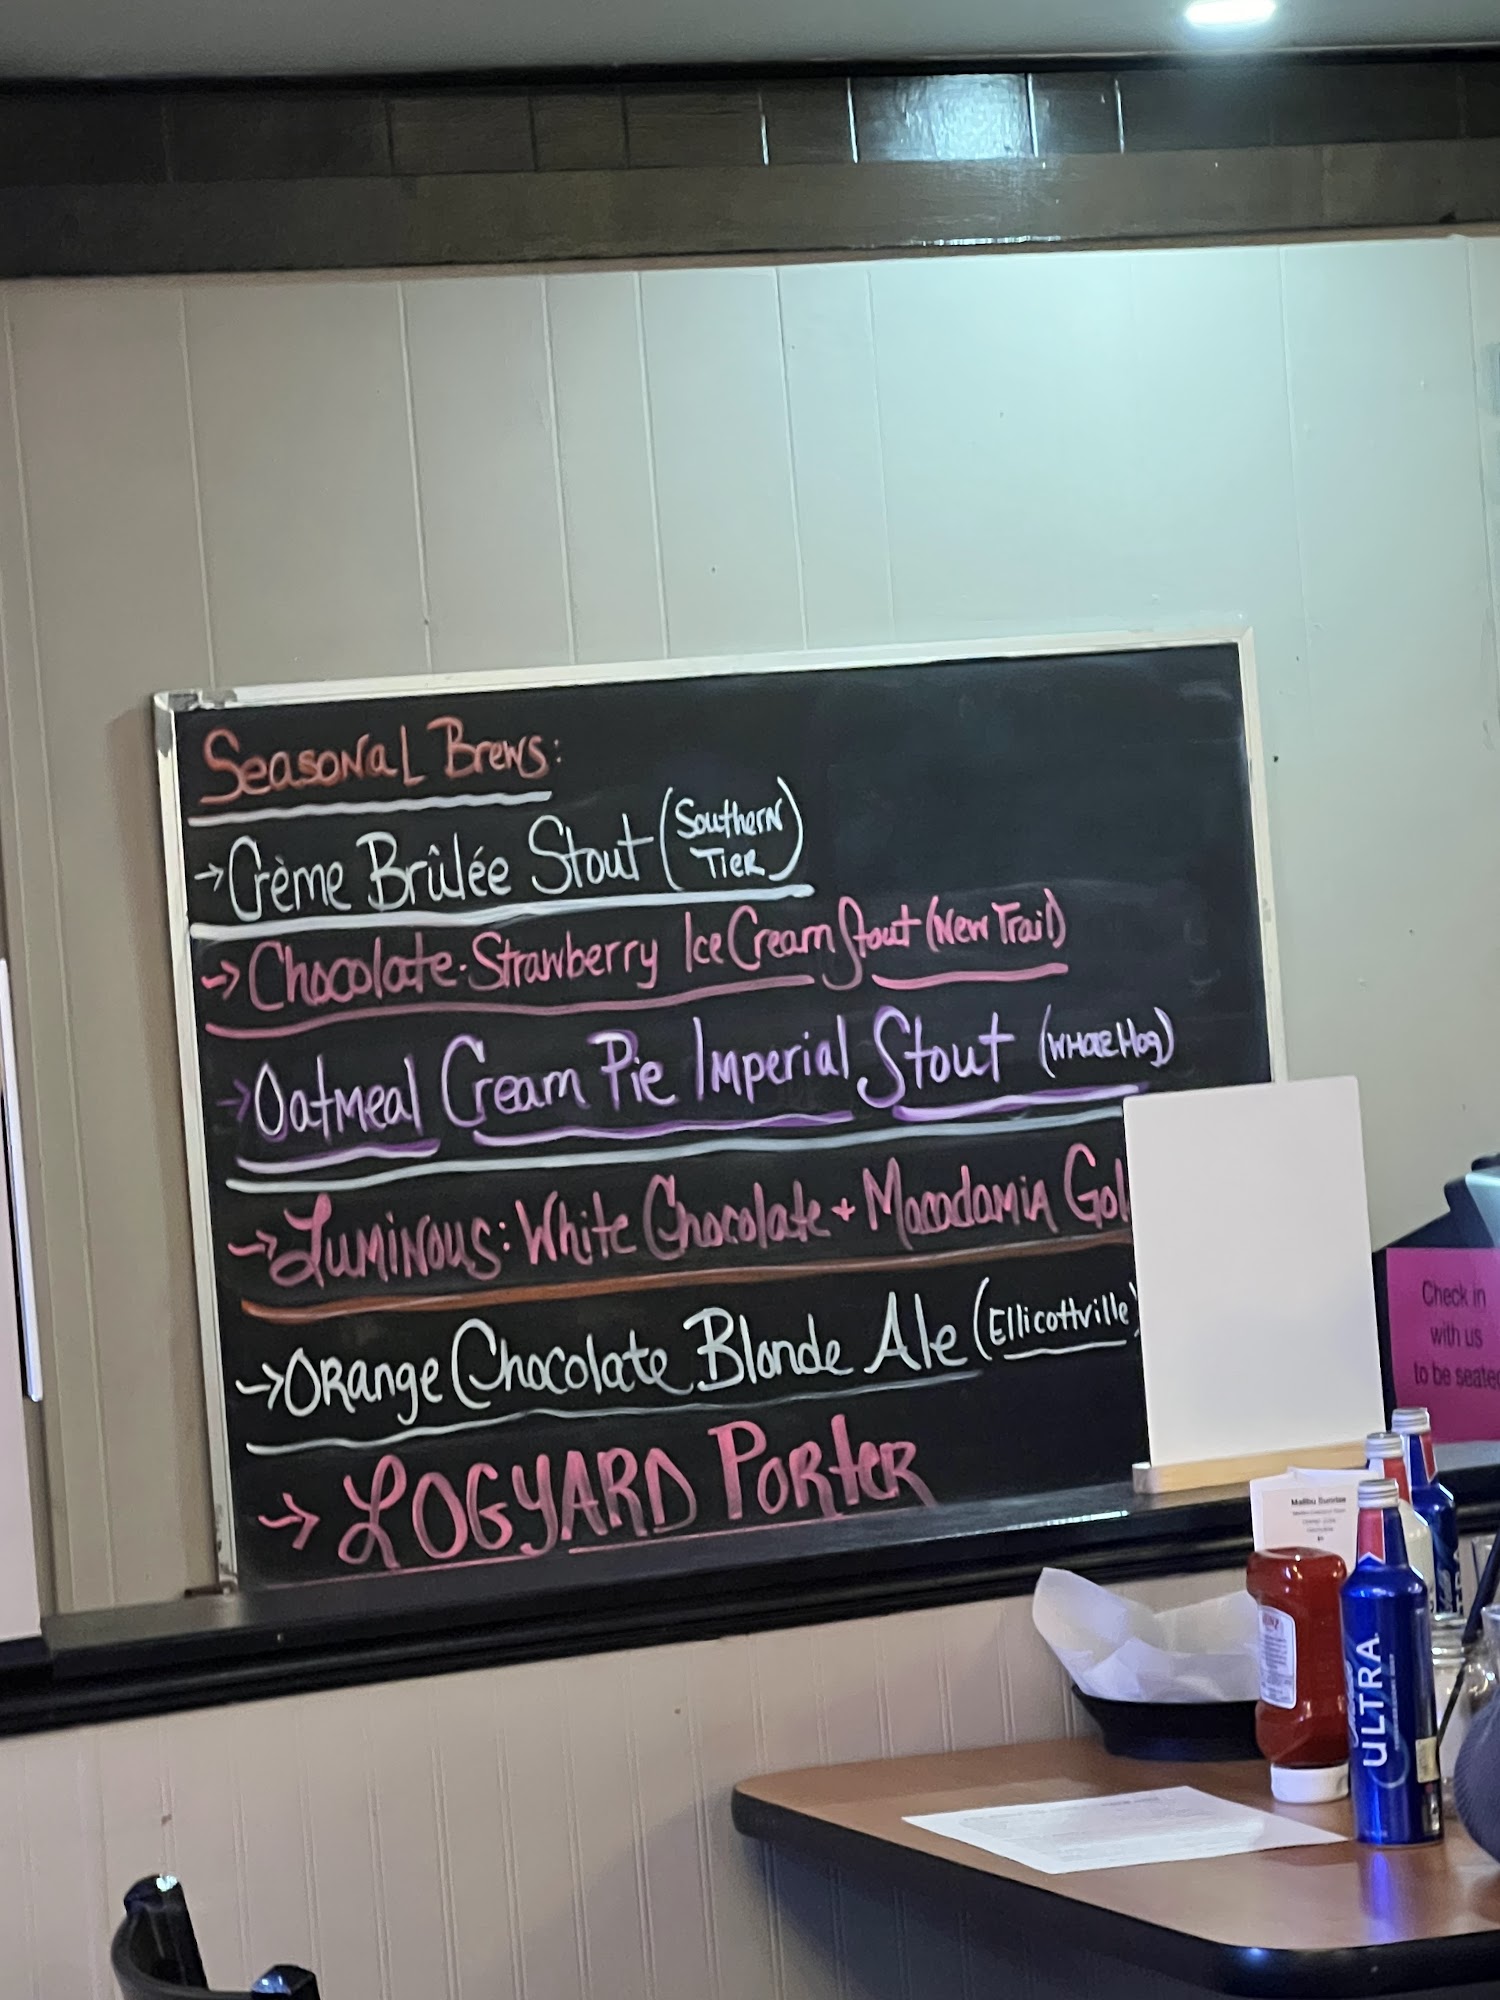 Seasonal Brews:
→ Crème Brûlée Stout (Southern Tier)
→ Chocolate-Strawberry Ice Cream Stout (New Trail)
→ Oatmeal Cream Pie Imperial Stout (Whole Hog)
→ Luminous: White Chocolate + Macadamia Gol
→ Orange Chocolate Blonde Ale (Ellicottville)
→ LOGYARD PORTER
Check in
with us
to be seated
Malibu Sunrise
HEINZ
ULTRA